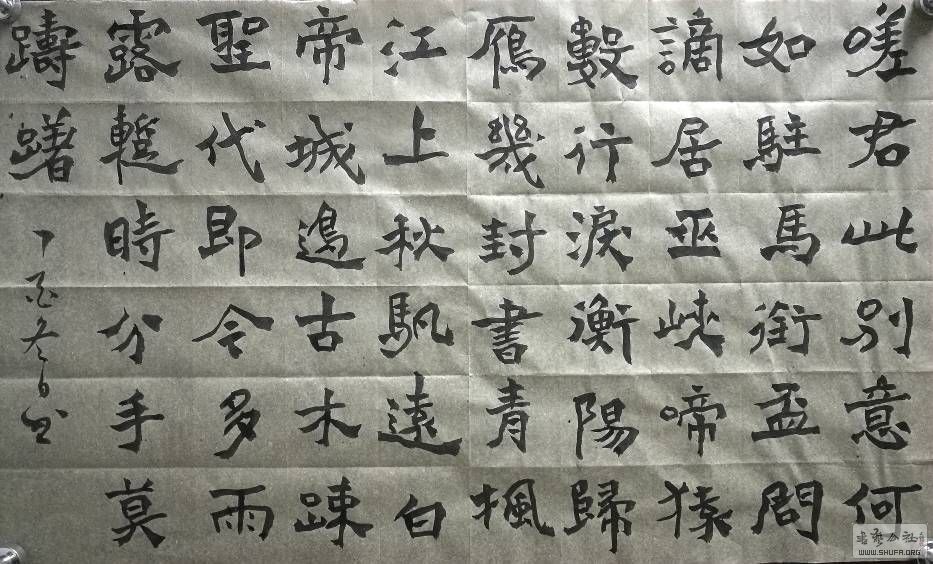 嗟君此別意何
如駐馬銜盃問
謫居巫峽啼猿
數行淚衡陽歸
鴈幾封書青楓
江上秋帆遠白
帝城邊古木踈
聖代即今多雨
露暫時分手莫
躊躇
丁酉冬日書
書藝公社
WWW.SHUFA.ORG